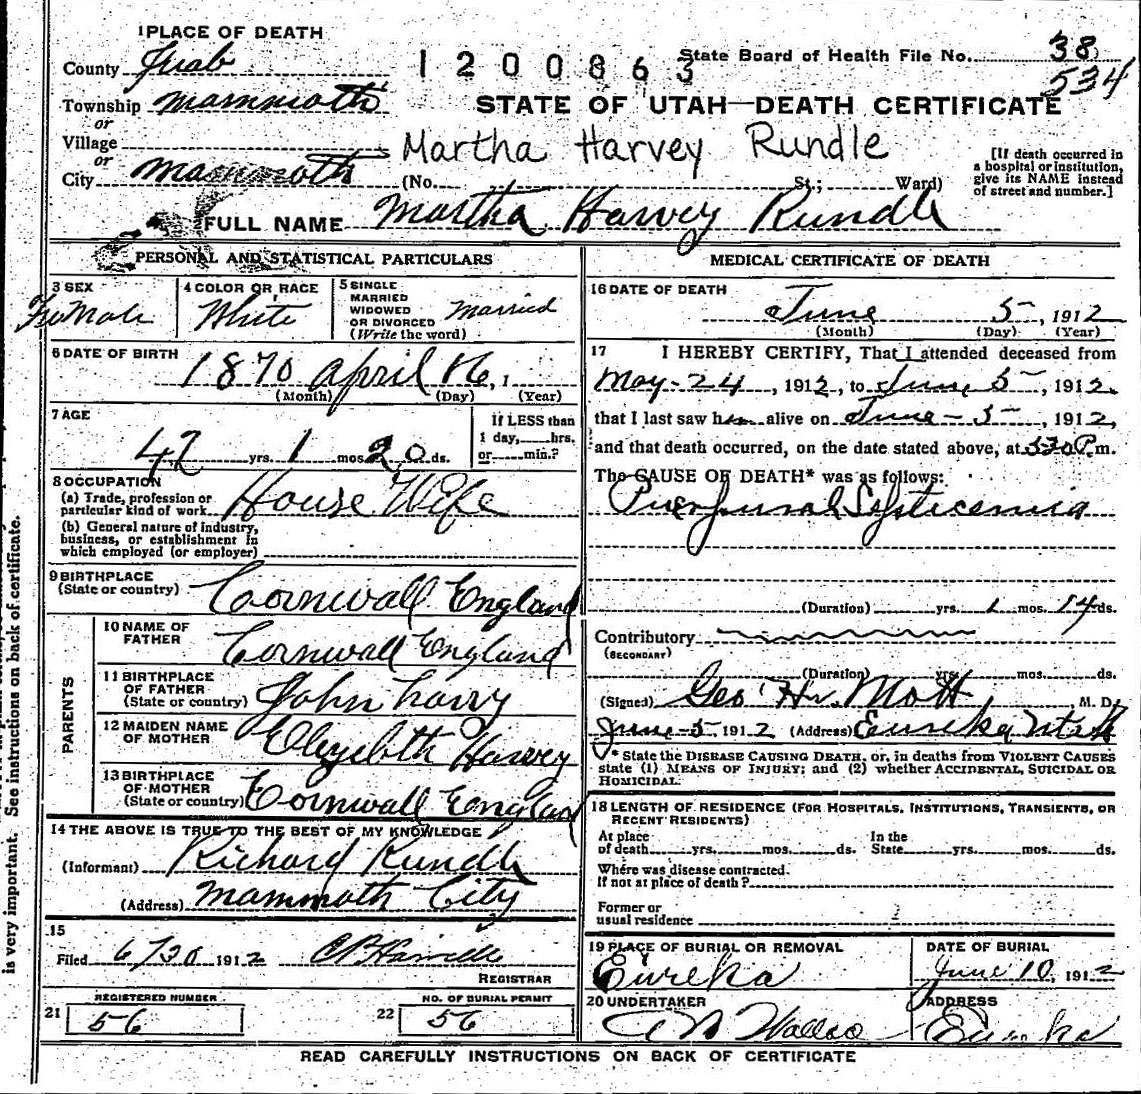 1 PLACE OF DEATH
County Juab
1200863 State Board of Health File No. 38
534
Township Mammoth
STATE OF UTAH—DEATH CERTIFICATE
or
Village
Martha Harvey Rundle
or
City Mammoth (No. St.; Ward)
[If death occurred in a hospital or institution, give its NAME instead of street and number.]
FULL NAME Martha Harvey Rundle
PERSONAL AND STATISTICAL PARTICULARS
3 SEX
FeMale
4 COLOR OR RACE
White
5 SINGLE
MARRIED
WIDOWED
OR DIVORCED
(Write the word)
Married
6 DATE OF BIRTH
1870 April 16, 1
(Month) (Day) (Year)
7 AGE
42 yrs. 1 mos. 20 ds.
If LESS than
1 day, hrs.
or min.?
8 OCCUPATION
(a) Trade, profession or
particular kind of work
House Wife
(b) General nature of industry,
business, or establishment in
which employed (or employer)
9 BIRTHPLACE
(State or country)
Cornwall England
PARENTS
10 NAME OF
FATHER
Cornwall England
11 BIRTHPLACE
OF FATHER
(State or country)
John
12 MAIDEN NAME
OF MOTHER
Elizebeth Harvey
13 BIRTHPLACE
OF MOTHER
(State or country)
Cornwall England
14 THE ABOVE IS TRUE TO THE BEST OF MY KNOWLEDGE
(Informant) Richard Rundle
(Address) Mammoth City
15
Filed 6/30 1912
REGISTRAR
REGISTERED NUMBER
21 56
NO. OF BURIAL PERMIT
22 56
MEDICAL CERTIFICATE OF DEATH
16 DATE OF DEATH
June 5, 1912
(Month) (Day) (Year)
17 I HEREBY CERTIFY, That I attended deceased from
May-24, 1912, to June 5, 1912.
that I last saw alive on June-5, 1912,
and that death occurred, on the date stated above, at 530 P.m.
The CAUSE OF DEATH* was as follows:
Puerpural Septicemia
(Duration) yrs. 1 mos. 14 ds.
Contributory
(SECONDARY)
(Duration) yrs. mos. ds.
(Signed) Geo W. Mott M. D.
June-5, 1912 (Address) Eureka Utah
* State the DISEASE CAUSING DEATH, or, in deaths from VIOLENT CAUSES
state (1) MEANS OF INJURY; and (2) whether ACCIDENTAL, SUICIDAL OR
HOMICIDAL.
18 LENGTH OF RESIDENCE (FOR HOSPITALS, INSTITUTIONS, TRANSIENTS, OR
RECENT RESIDENTS)
At place
of death yrs. mos. ds.
In the
State yrs. mos. ds.
Where was disease contracted.
If not at place of death?
Former or
usual residence
19 PLACE OF BURIAL OR REMOVAL
Eureka
DATE OF BURIAL
June 10, 1912
20 UNDERTAKER
Wallace
ADDRESS
Eureka
READ CAREFULLY INSTRUCTIONS ON BACK OF CERTIFICATE
is very important. See instructions on back of certificate.